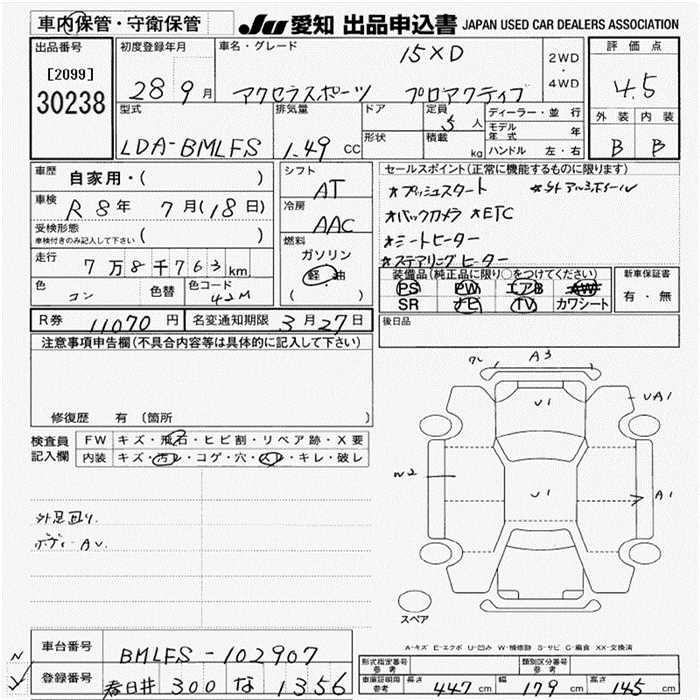 車内保管・守衛保管 JU 愛知 出品申込書 JAPAN USED CAR DEALERS ASSOCIATION
出品番号 [2099] 30238
初度登録年月 28 9月
車名・グレード 15XD
アクセラスポーツ プロアクティブ
2WD・4WD
評価点 4.5
外装 内装
B B
型式 LDA-BMLFS
排気量 1.49 CC
ドア
形状
定員 5人
積載 kg
ディーラー・並行
モデル年式 年
ハンドル 左・右
車歴 自家用・( )
車検 R8年 7月(18日)
受検形態 車検付きのみ記入して下さい ( )
走行 7万8千763km
色 コン 色替 色コード 42M
シフト AT
冷房 AAC
燃料 ガソリン
軽油
( )
セールスポイント(正常に機能するものに限ります)
*プッシュスタート *社外アルミホイール
*バックカメラ *ETC
*シートヒーター
*ステアリングヒーター
装備品(純正品に限り○をつけてください)
PS PW エアB AW
SR ナビ TV カワシート
新車保証書
有・無
R券 11070円 名変通知期限 3月27日
後日品
注意事項申告欄(不具合内容等は具体的に記入して下さい)
修復歴 有 (箇所 )
検査員記入欄 FW キズ・飛石・ヒビ割・リペア跡・X要
内装 キズ・汚レ・コゲ・穴・スレ・キレ・破レ
ボディーAU.
A3
U1
UA1
W2
U1
A1
スペア
A-キズ E-エクボ U-凹み W-補修跡 S-サビ C-腐食 XX-交換済
車台番号 BMLFS-102907
登録番号 春日井 300 な 1356
形式指定番号 参考 類別区分番号 参考
車庫証明用 参考 長さ 447cm 幅 179cm 高さ 145cm